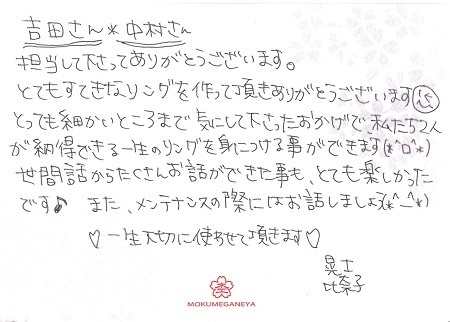 吉田さん*中村さん
担当して下さってありがとうございます。
とてもすてきなリングを作って頂きありがとうございます
とっても細かいところまで気にして下さったおかげで、私たち2人
が納得できる一生のリングを身につける事ができます(*^o^*)
世間話からたくさんお話ができた事も、とても楽しかった
です♪ また、メンテナンスの際にはお話しましょう(*^_^*)
♡一生大切に使わせて頂きます♡
晃士
比奈子
MOKUMEGANEYA